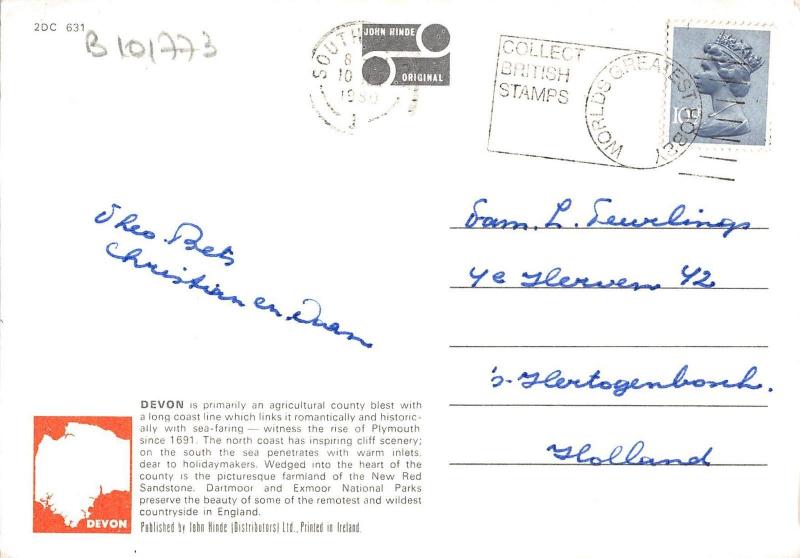 2DC 631
B 101773
JOHN HINDE
ORIGINAL
SOUTH
8
10
1980
COLLECT
BRITISH
STAMPS
WORLDS GREATEST HOBBY
10P
Theo. Bets
Christian en Daan
Fam. L. Teurlings
4e Herven 42
's-Hertogenbosch.
Holland
DEVON is primarily an agricultural county blest with
a long coast line which links it romantically and historic-
ally with sea-faring — witness the rise of Plymouth
since 1691. The north coast has inspiring cliff scenery;
on the south the sea penetrates with warm inlets,
dear to holidaymakers. Wedged into the heart of the
county is the picturesque farmland of the New Red
Sandstone. Dartmoor and Exmoor National Parks
preserve the beauty of some of the remotest and wildest
countryside in England.
DEVON
Published by John Hinde (Distributors) Ltd., Printed in Ireland.